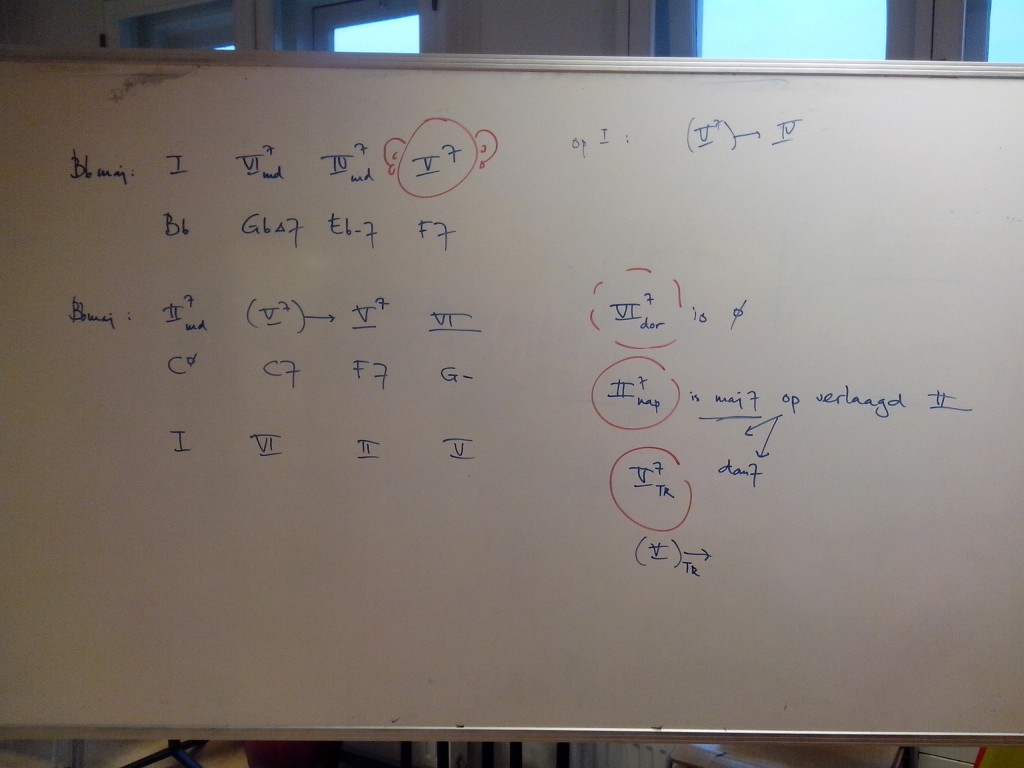 Bb maj: I VI⁷md IV⁷md V7
Bb GbΔ7 Eb-7 F7
Bbmaj: II⁷md (V⁷)→ V⁷ VI
Cø C7 F7 G-
I VI II V
op I: (V⁷)→ IV
VI⁷dor is ø
II⁷nap is maj7 op verlaagd II
V⁷TR dan7
(V)TR→